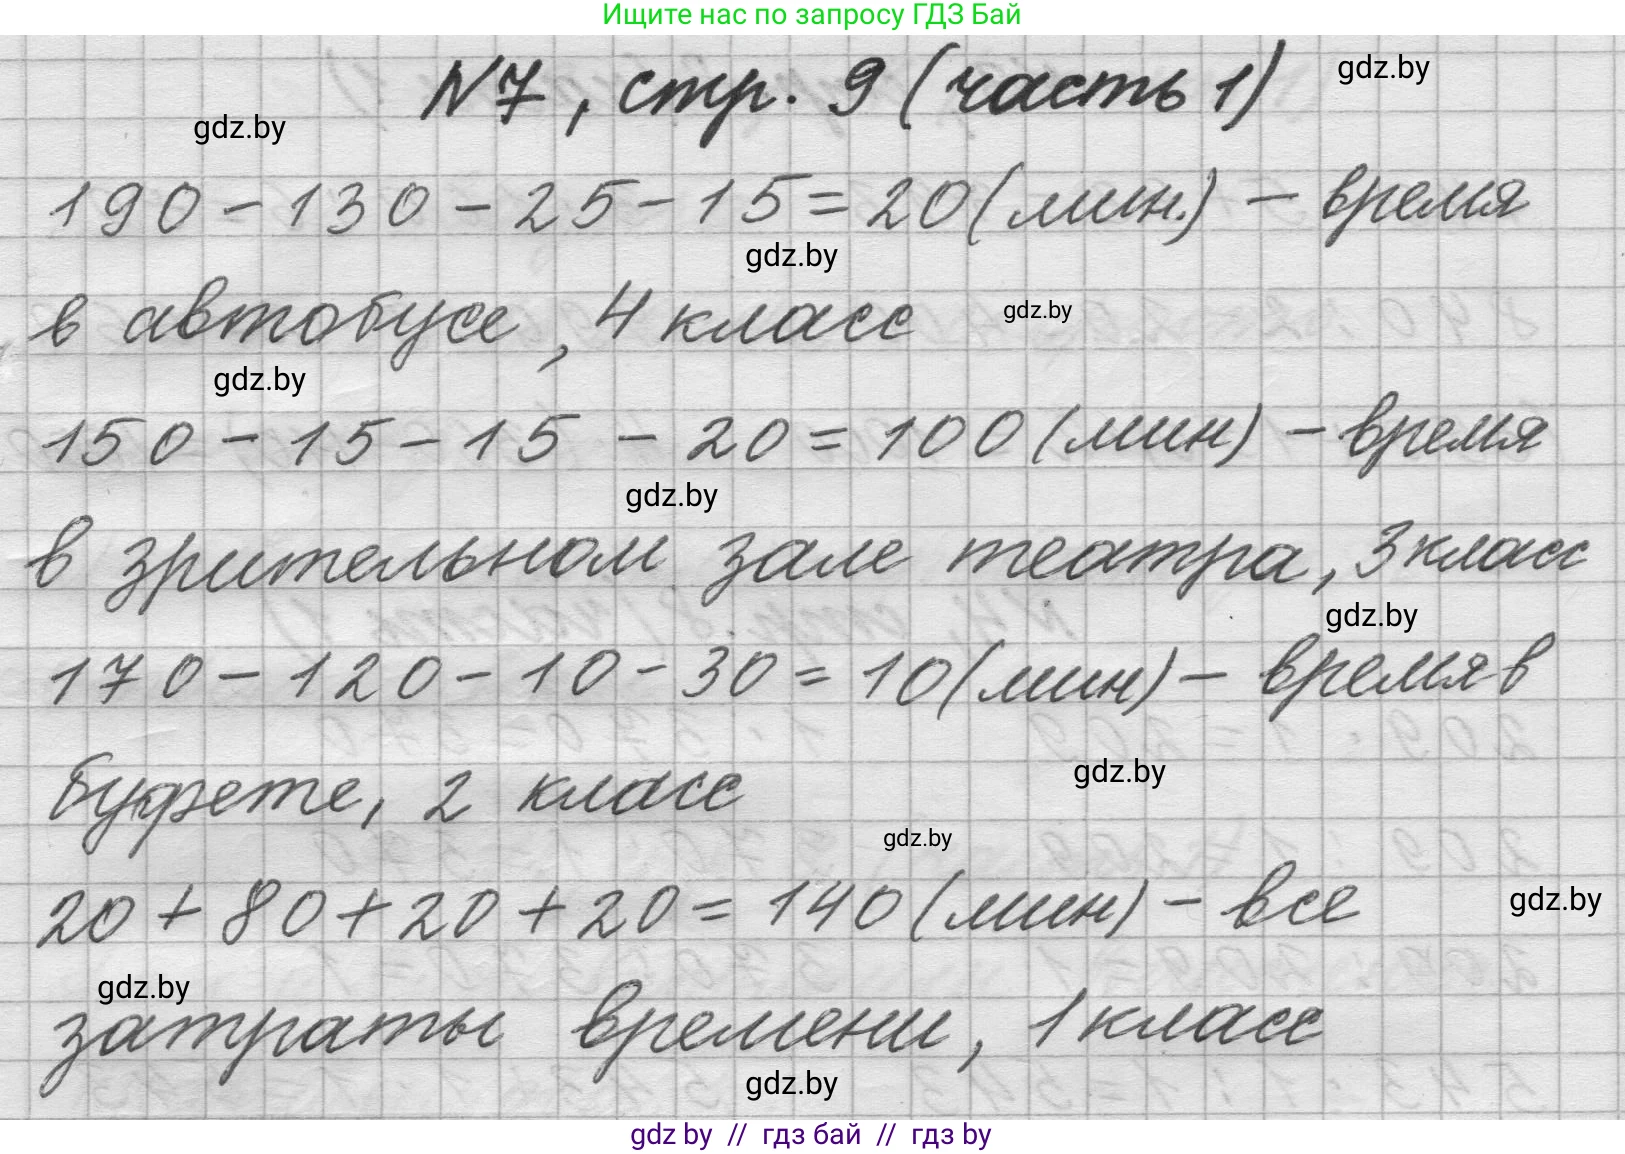 Ищите нас по запросу ГДЗ Бай
N7, стр. 9 (часть 1)
gdz.by
gdz.by
190 - 130 - 25 - 15 = 20 (мин.) - время
gdz.by
в автобусе, 4 класс
gdz.by
gdz.by
150 - 15 - 15 - 20 = 100 (мин) - время
gdz.by
в зрительном зале театра, 3 класс
gdz.by
170 - 120 - 10 - 30 = 10 (мин) - время в
gdz.by
буфете, 2 класс
gdz.by
20 + 80 + 20 + 20 = 140 (мин) - все
gdz.by
gdz.by
затраты времени, 1 класс
gdz.by
gdz by // гдз бай // гдз by